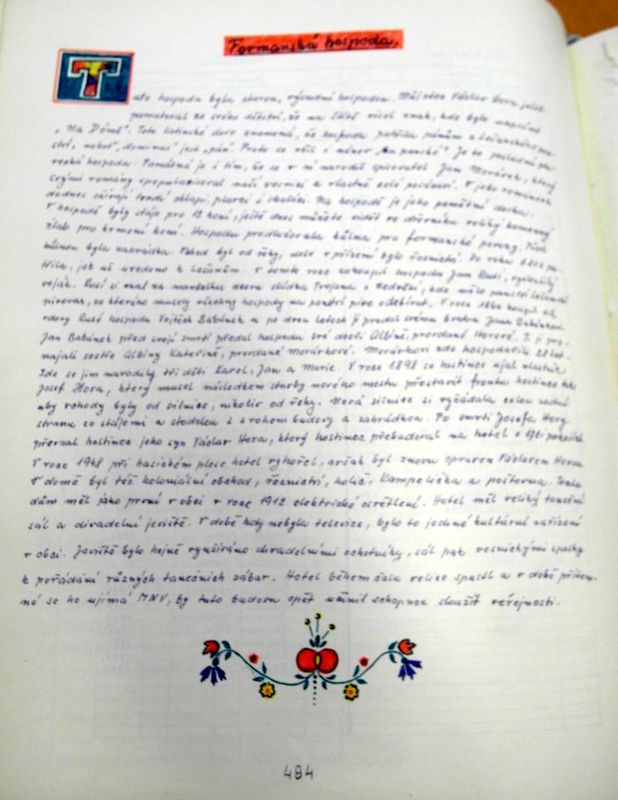 Formanská hospoda.
Tato hospoda byla starou, výsadní hospodou. Václav Hora ještě
pamatoval ze svého dětství, že na štítě visel znak, kde bylo napsáno
Toto latinské slovo znamená, že hospoda patřila pánům
neboť "dominus" jest "pán". Proto se vžil i název "Na panské". Je to poslední
hospoda. Památná je i tím, že se v ní narodil spisovatel Jan Morávek, který
svými romány zpopularizoval naši vesnici a vlastně celé posázaví. V jeho románech
dodnes ožívají tvrdí chlapi, plavci i skaláci. Na hospodě je jeho pamětní deska.
V hospodě byly stáje pro 12 koní, ještě dnes můžete vidět ve dřevníku veliký kamenný
žlab pro krmení koní. Hospodu prodlužovala kůlna pro formanské povozy. Před
kůlnou byla zahrádka. Vchod byl od řeky, dole v přízemí bylo řeznictví. Do roku
jak už uvedeno k Lešanům. V tomto roce zakoupil hospodu Jan Rusí, vysloužilý
voják. Rusí si vzal za manželku dceru sládka Trojana z
pivovar, ze kterého musely všechny hospody na panství pivo odebírat. V roce koupil od
vdovy Rusé hospodu Vojtěch Babánek a po dvou letech ji prodal svému bratru Janu Babánkovi.
Jan Babánek před svojí smrtí předal hospodu své dceři Albíně, provdané Horové. Ti ji
najali sestře Albíny Kateřině, provdané Morávkové. Morávkovi zde hospodařili let.
Zde se jim narodily tři děti Karel, Jan a Marie. V roce 1898 se hostince ujal vlastník
Josef Hora, který musel následkem stavby nového mostu přestavět frontu hostince tak,
aby vchody byly od silnice, nikoliv od řeky. Nová silnice si vyžádala celou zadní
stranu se stájemi a stodolou i s rohem budovy a zahrádkou. Po smrti Josefa Hory
převzal hostinec jeho syn Václav Hora, který hostinec přebudoval na hotel s pokojích
V roce 1948 při hasičském plese hotel vyhořel, avšak byl znovu opraven Václavem Horou.
V domě byl též koloniální obchod, řeznictví, holič, Kampelička a poštovna. Tento
dům měl jako první v obci v roce 1912 elektrické osvětlení. Hotel měl veliký taneční
sál a divadelní jeviště. V době kdy nebyla televize, bylo to jediné kulturní zařízení
v obci. Jeviště bylo hojně využíváno divadelními ochotníky, sál pak vesnickými spolky
k pořádání různých tanečních zábav. Hotel během času velice zpustl a v době přítom-
né se ho ujímá MNV, by tuto budovu opět učinil schopnou sloužit veřejnosti.
484